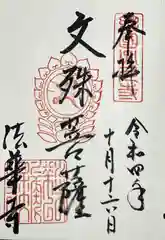 奉拝
令和四年
十月十六日
文殊菩薩
法華寺